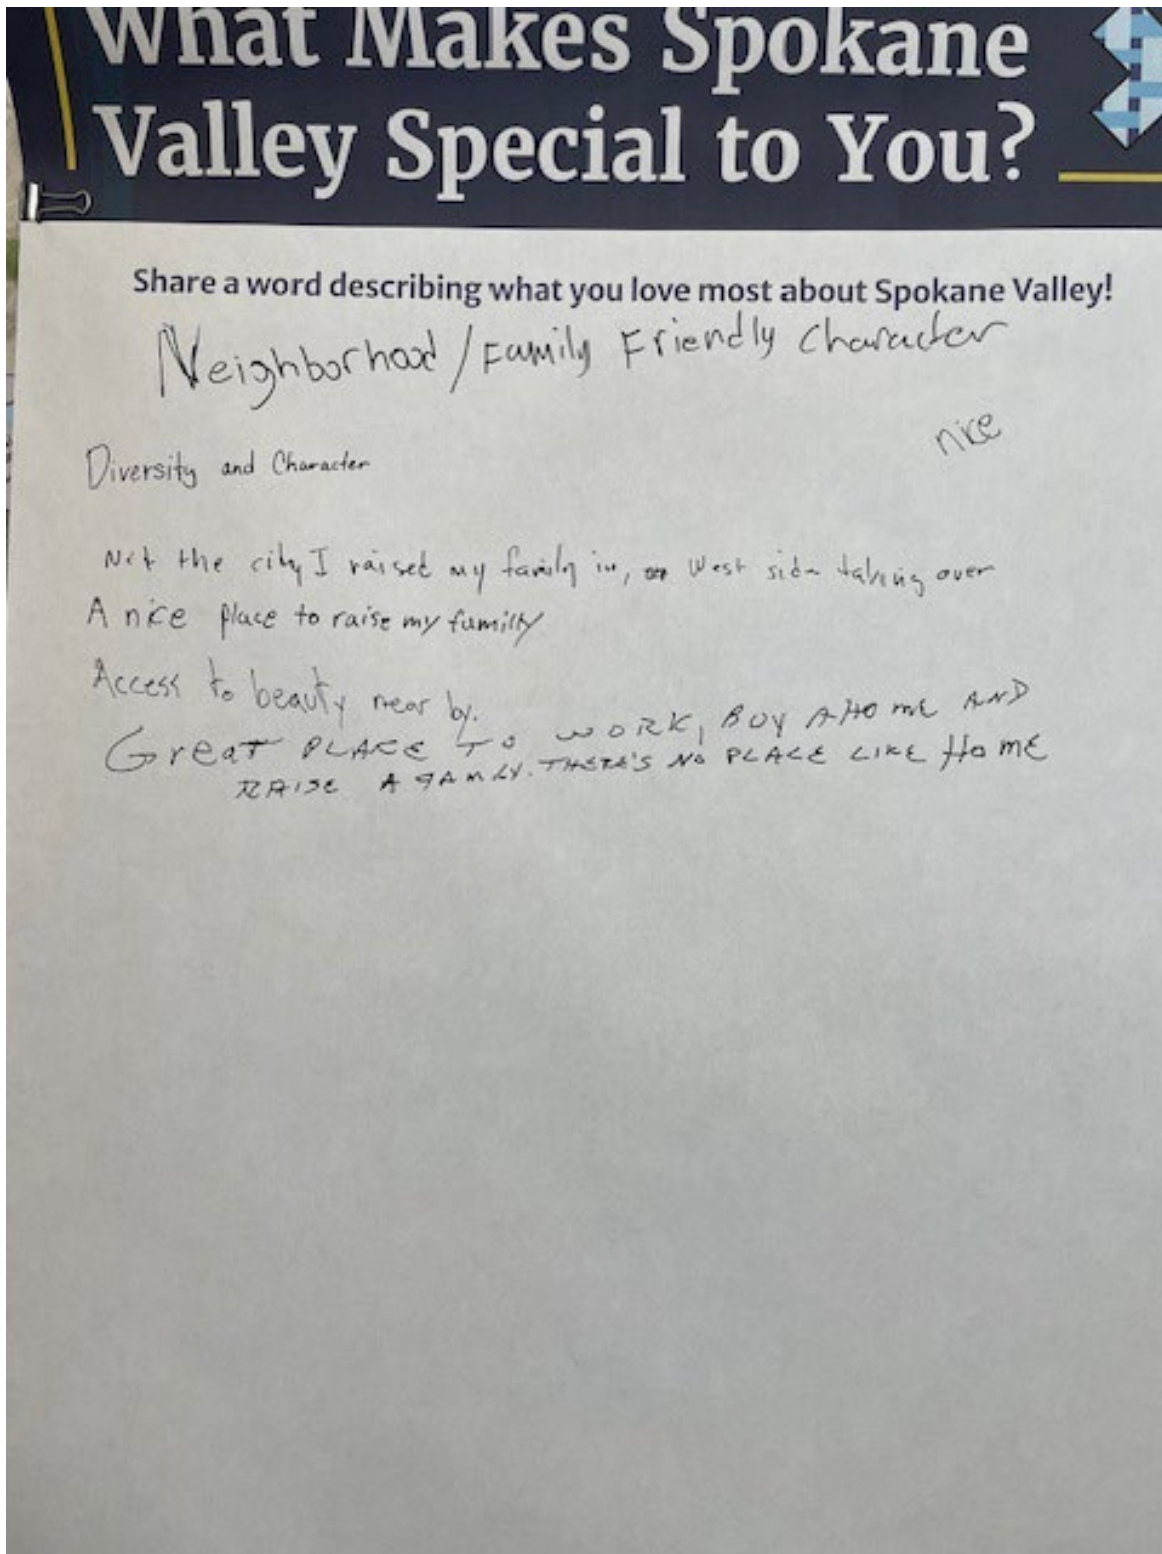 What Makes Spokane
Valley Special to You?
Share a word describing what you love most about Spokane Valley!
Neighborhood / Family Friendly Character
nice
Diversity and Character
Not the city I raised my family in, West side taking over
A nice place to raise my family
Access to beauty near by.
Great PLACE TO WORK, BUY A HOME AND
RAISE A FAMILY. THERE'S NO PLACE LIKE HOME